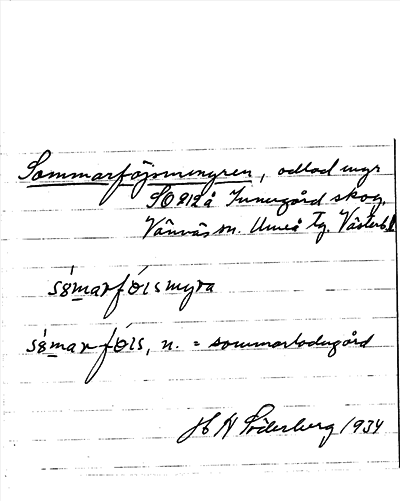 Sommarföjsmyren, odlad myr
SO 212 å Innergård skog,
Vännäs sn. Umeå Tg. Västerb.
sómarfóismyra
sómarfóis, n. = sommarladugård
H H Söderberg 1934